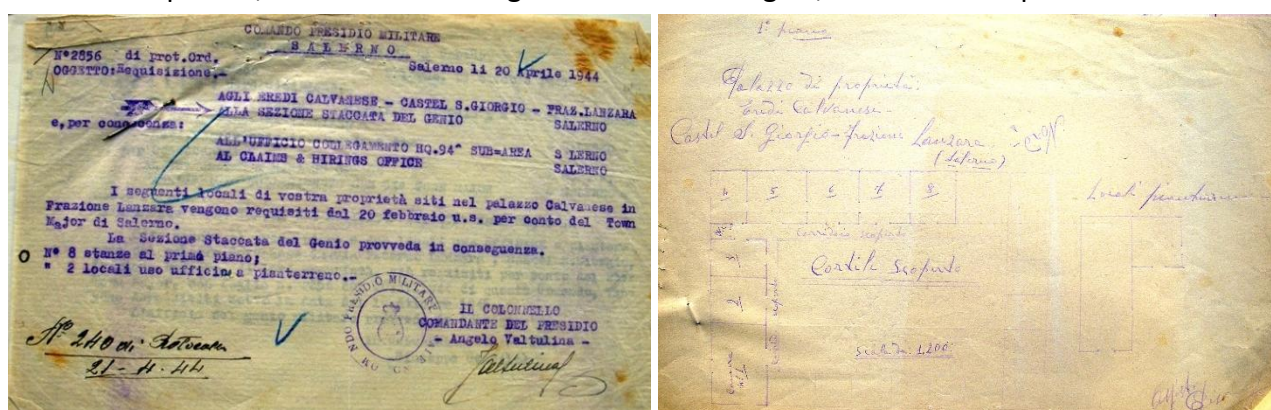 COMANDO PRESIDIO MILITARE
SALERNO
N°2856 di prot.Ord.
OGGETTO:Requisizione.-
Salerno li 20 Aprile 1944
AGLI EREDI CALVANESE - CASTEL S.GIORGIO - FRAZ.LANZARA
ALLA SEZIONE STACCATA DEL GENIO SALERNO
e,per conoscenza:
ALL'UFFICIO COLLEGAMENTO HQ.94^ SUB=AREA S LERNO
AL CLAIMS & HIRINGS OFFICE SALERNO
I seguenti locali di vostra proprietà siti nel palazzo Calvanese in
Frazione Lanzara vengono requisiti dal 20 febbraio u.s. per conto del Town
Major di Salerno.
La Sezione Staccata del Genio provveda in conseguenza.
N° 8 stanze al primo piano;
" 2 locali uso ufficio a pianterreno.-
IL COLONNELLO
COMANDANTE DEL PRESIDIO
- Angelo Valtulina -
Nº 240 di
21-4-44
1º piano
Palazzo di proprietà
Eredi Calvanese -
Castel S. Giorgio - Frazione Lanzara
(Salerno)
4 5 6 7 8
Locali
Corridoio scoperto
3
Cortile Scoperto
2
Scala 1:200